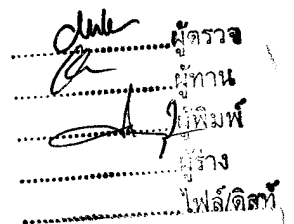 ผู้ตรวจ
ผู้ทาน
ผู้พิมพ์
ผู้ร่าง
ไฟล์/ดิสก์